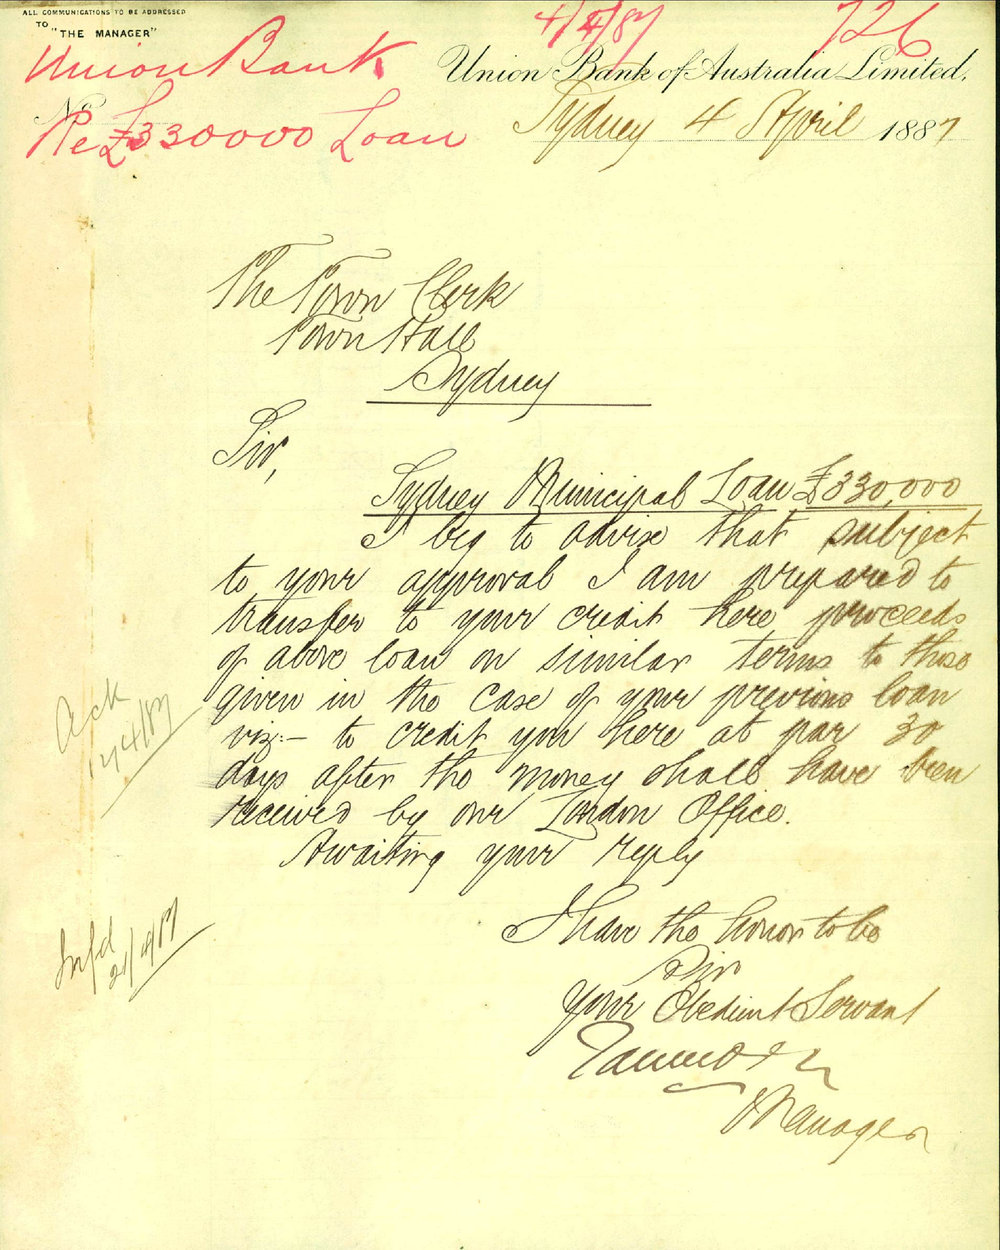 ALL COMMUNICATIONS TO BE ADDRESSED
TO
"THE MANAGER"
4/4/87
726
Union Bank
Union Bank of Australia Limited.
No
Re £330000 Loan
Sydney 4 April 1887
The Town Clerk
Town Hall
Sydney
Sir,
Sydney Municipal Loan £330,000
I beg to advise that subject
to your approval I am prepared to
transfer to your credit here proceeds
of above loan on similar terms to those
given in the case of your previous loan
viz:- to credit you here at par 30
days after the money shall have been
received by our London Office.
Awaiting your reply
Ack
12/4/87
I have the honor to be
Sir
Your Obedient Servant
Manager
Infd
21/4/87